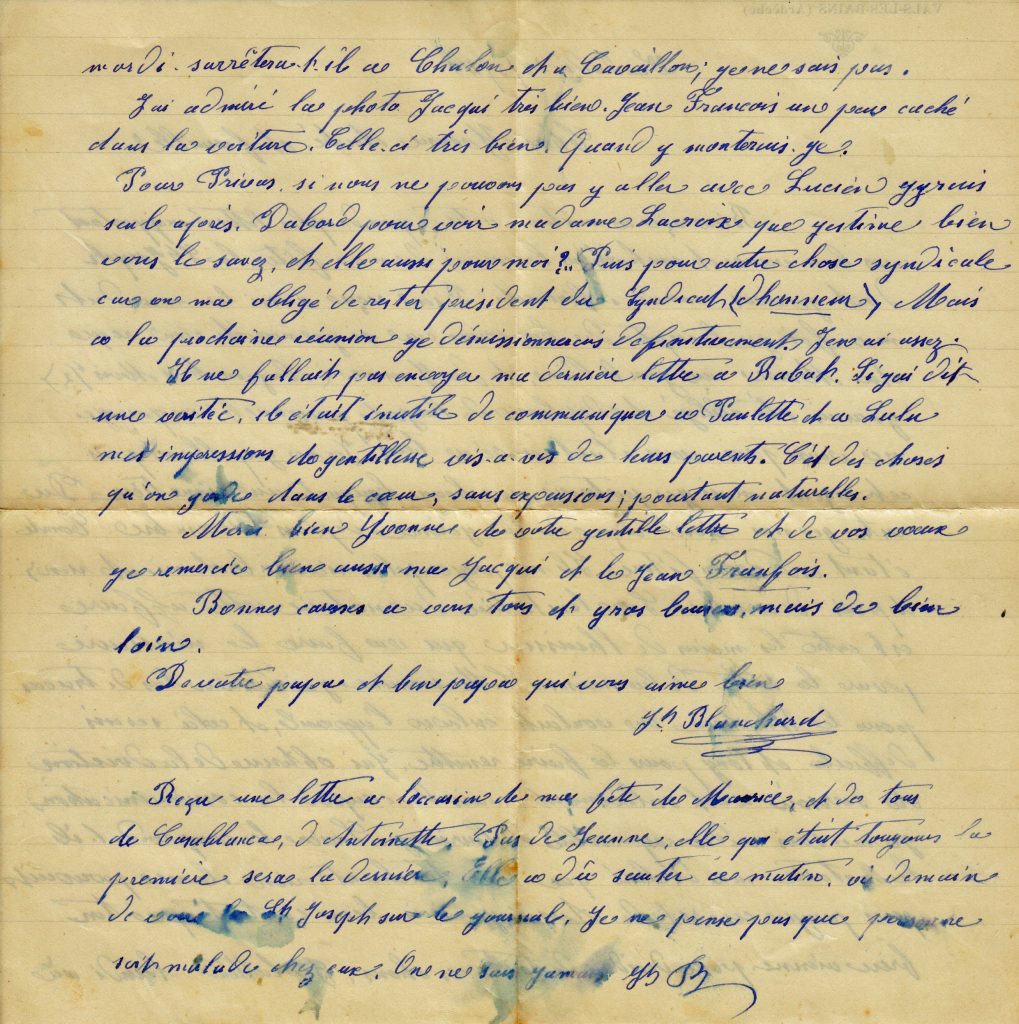 mardi. sarrêtera-t-il a Chalon et a Cavaillon; je ne sais pas.
J'ai admiré la photo Jacqui très bien. Jean François un peu caché
dans la voiture. Celle-ci très bien. Quand y monterais-je?
Pour Privas, si nous ne pouvons pas y aller avec Lucien j'yrais
seul après. Dabord pour voir madame Lacroix que j'estime bien
vous le savez, et elle aussi pour moi?.. Puis pour autre chose syndicale
car on ma obligé de rester président du Syndicat (dhonneur), Mais
a la prochaine réunion je démissionnerais definitivement. Jen ai assez.
Il ne fallait pas envoyer ma dernière lettre a Rabat. Si jai dit
une veritée, il était inutile de communiquer a Paulette et a Lulu
mes impressions de gentillesse vis-a-vis de leurs parents. C'ést des choses
qu'on garde dans le cœur, sans expansions; pourtant naturelles.
Merci bien Yvonne de votre gentille lettre et de vos vœux
je remercie bien aussi ma Jacqui et le Jean François.
Bonnes caresses a vous tous et gros baisers, mais de bien
loin.
De votre papa et bon papa qui vous aime bien
Jh Blanchard
Reçu une lettre a loccasion de ma fête de Maurice, et de tous
de Casablanca, d'Antoinette. Pas de Jeanne, elle qui était toujours la
première sera la dernière. Elle a dû sauter ce matin, où demain
de voir la St Joseph sur le journale. Je ne pense pas que personne
soit malade chez eux. On ne sais jamais Jh B